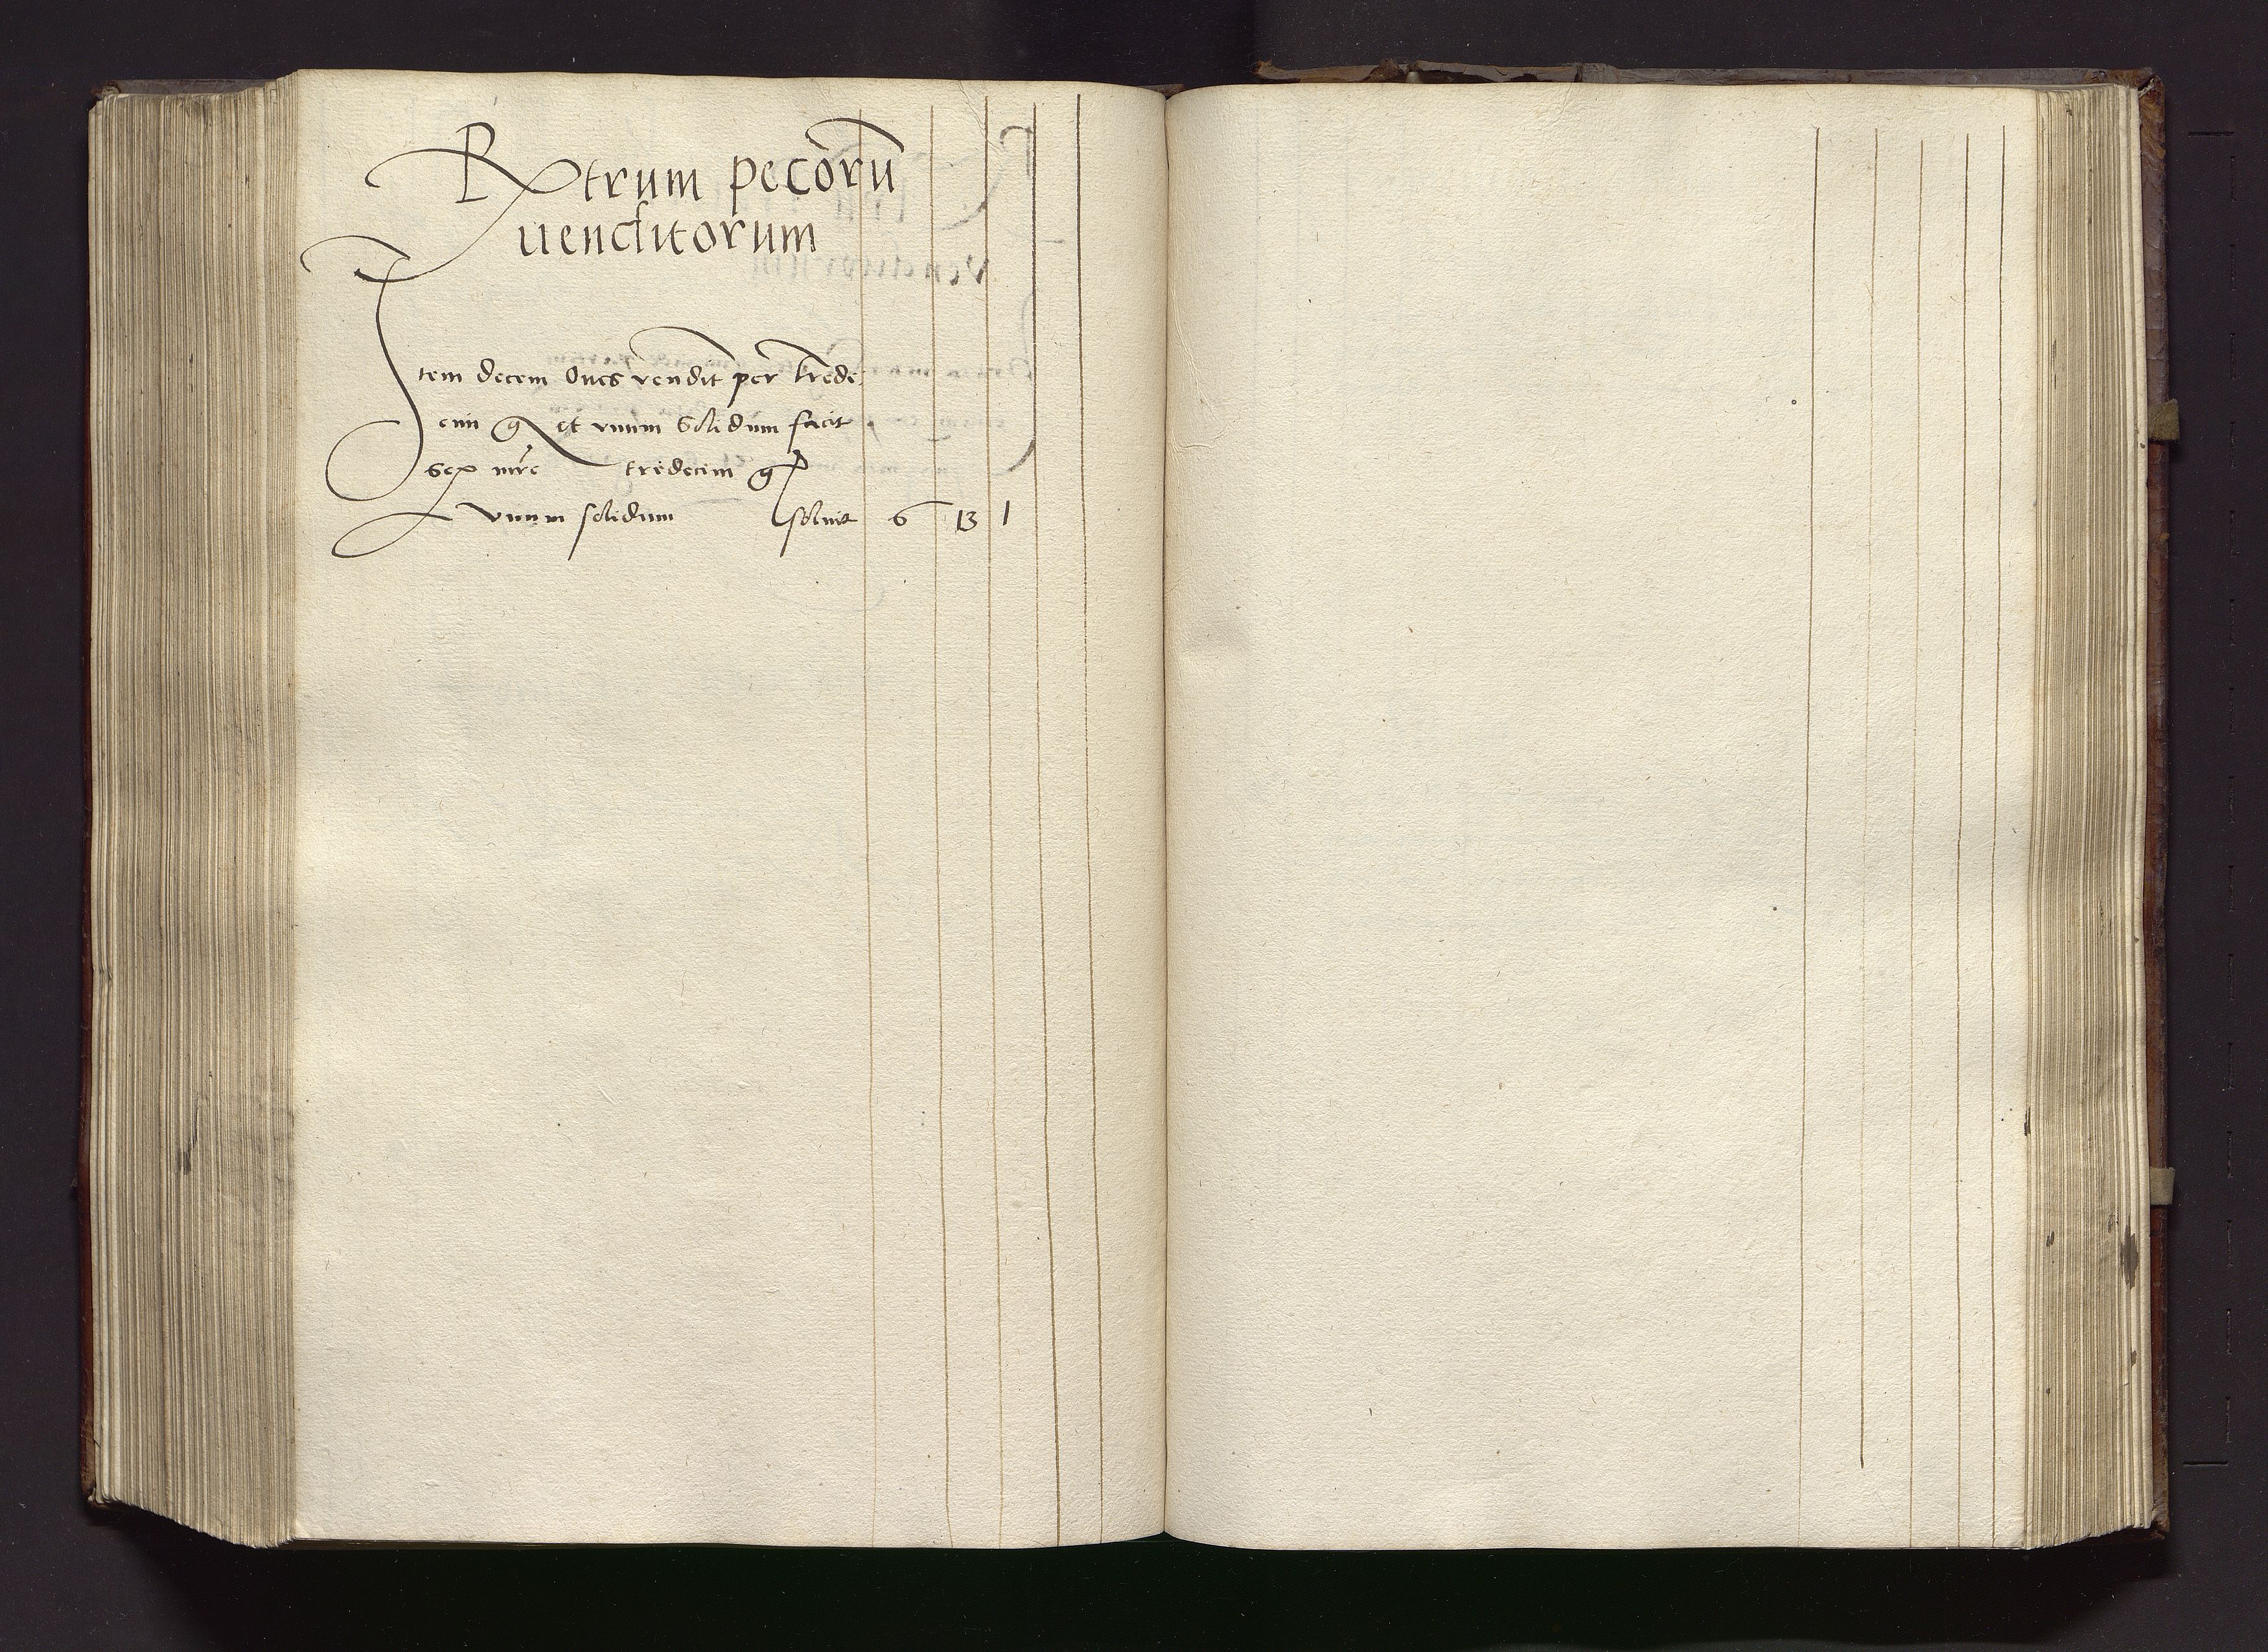 Rxtrum pecorū
uenditorum
Item decem Oues vendit per trede
cim g et vnum Solidum facit
Sex mrc tredecim g
vnum solidum soluit 6 13 1